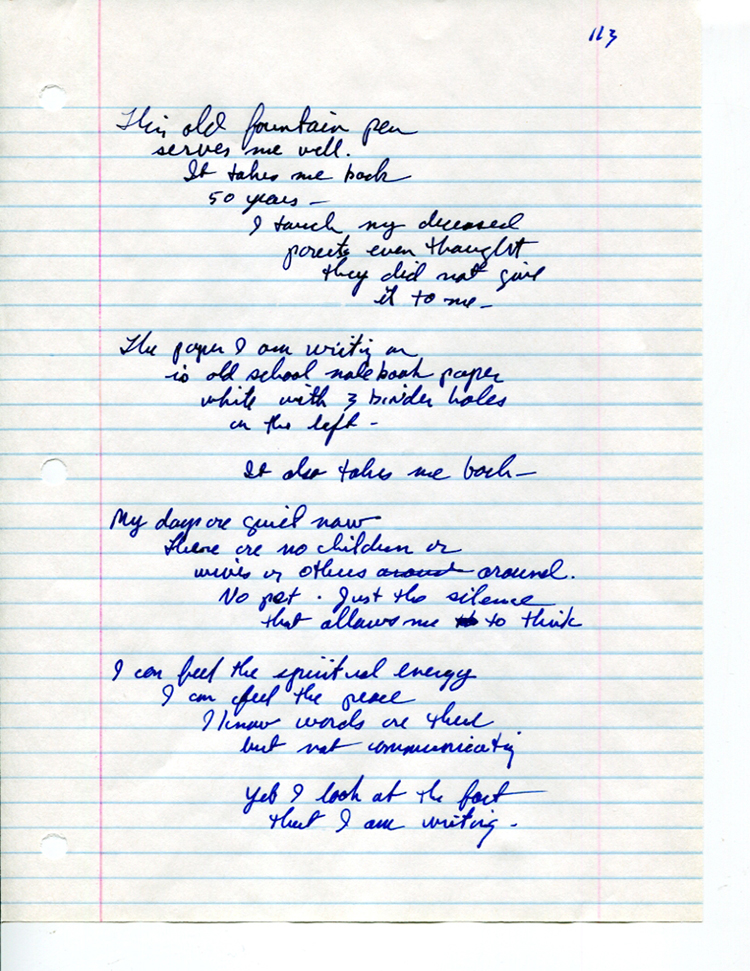 113
This old fountain pen
serves me well.
It takes me back
50 years –
I touch my deceased
parents even thought
they did not give
it to me –
The paper I am writing on
is old school notebook paper
white with 3 binder holes
on the left -
It also takes me back –
My days are quiet now
There are no children or
wives or others around around.
No pet. Just the silence
that allows me to think
I can feel the spiritual energy
I can feel the peace
I know words are there
but not communicating
Yet I look at the fact
that I am writing -